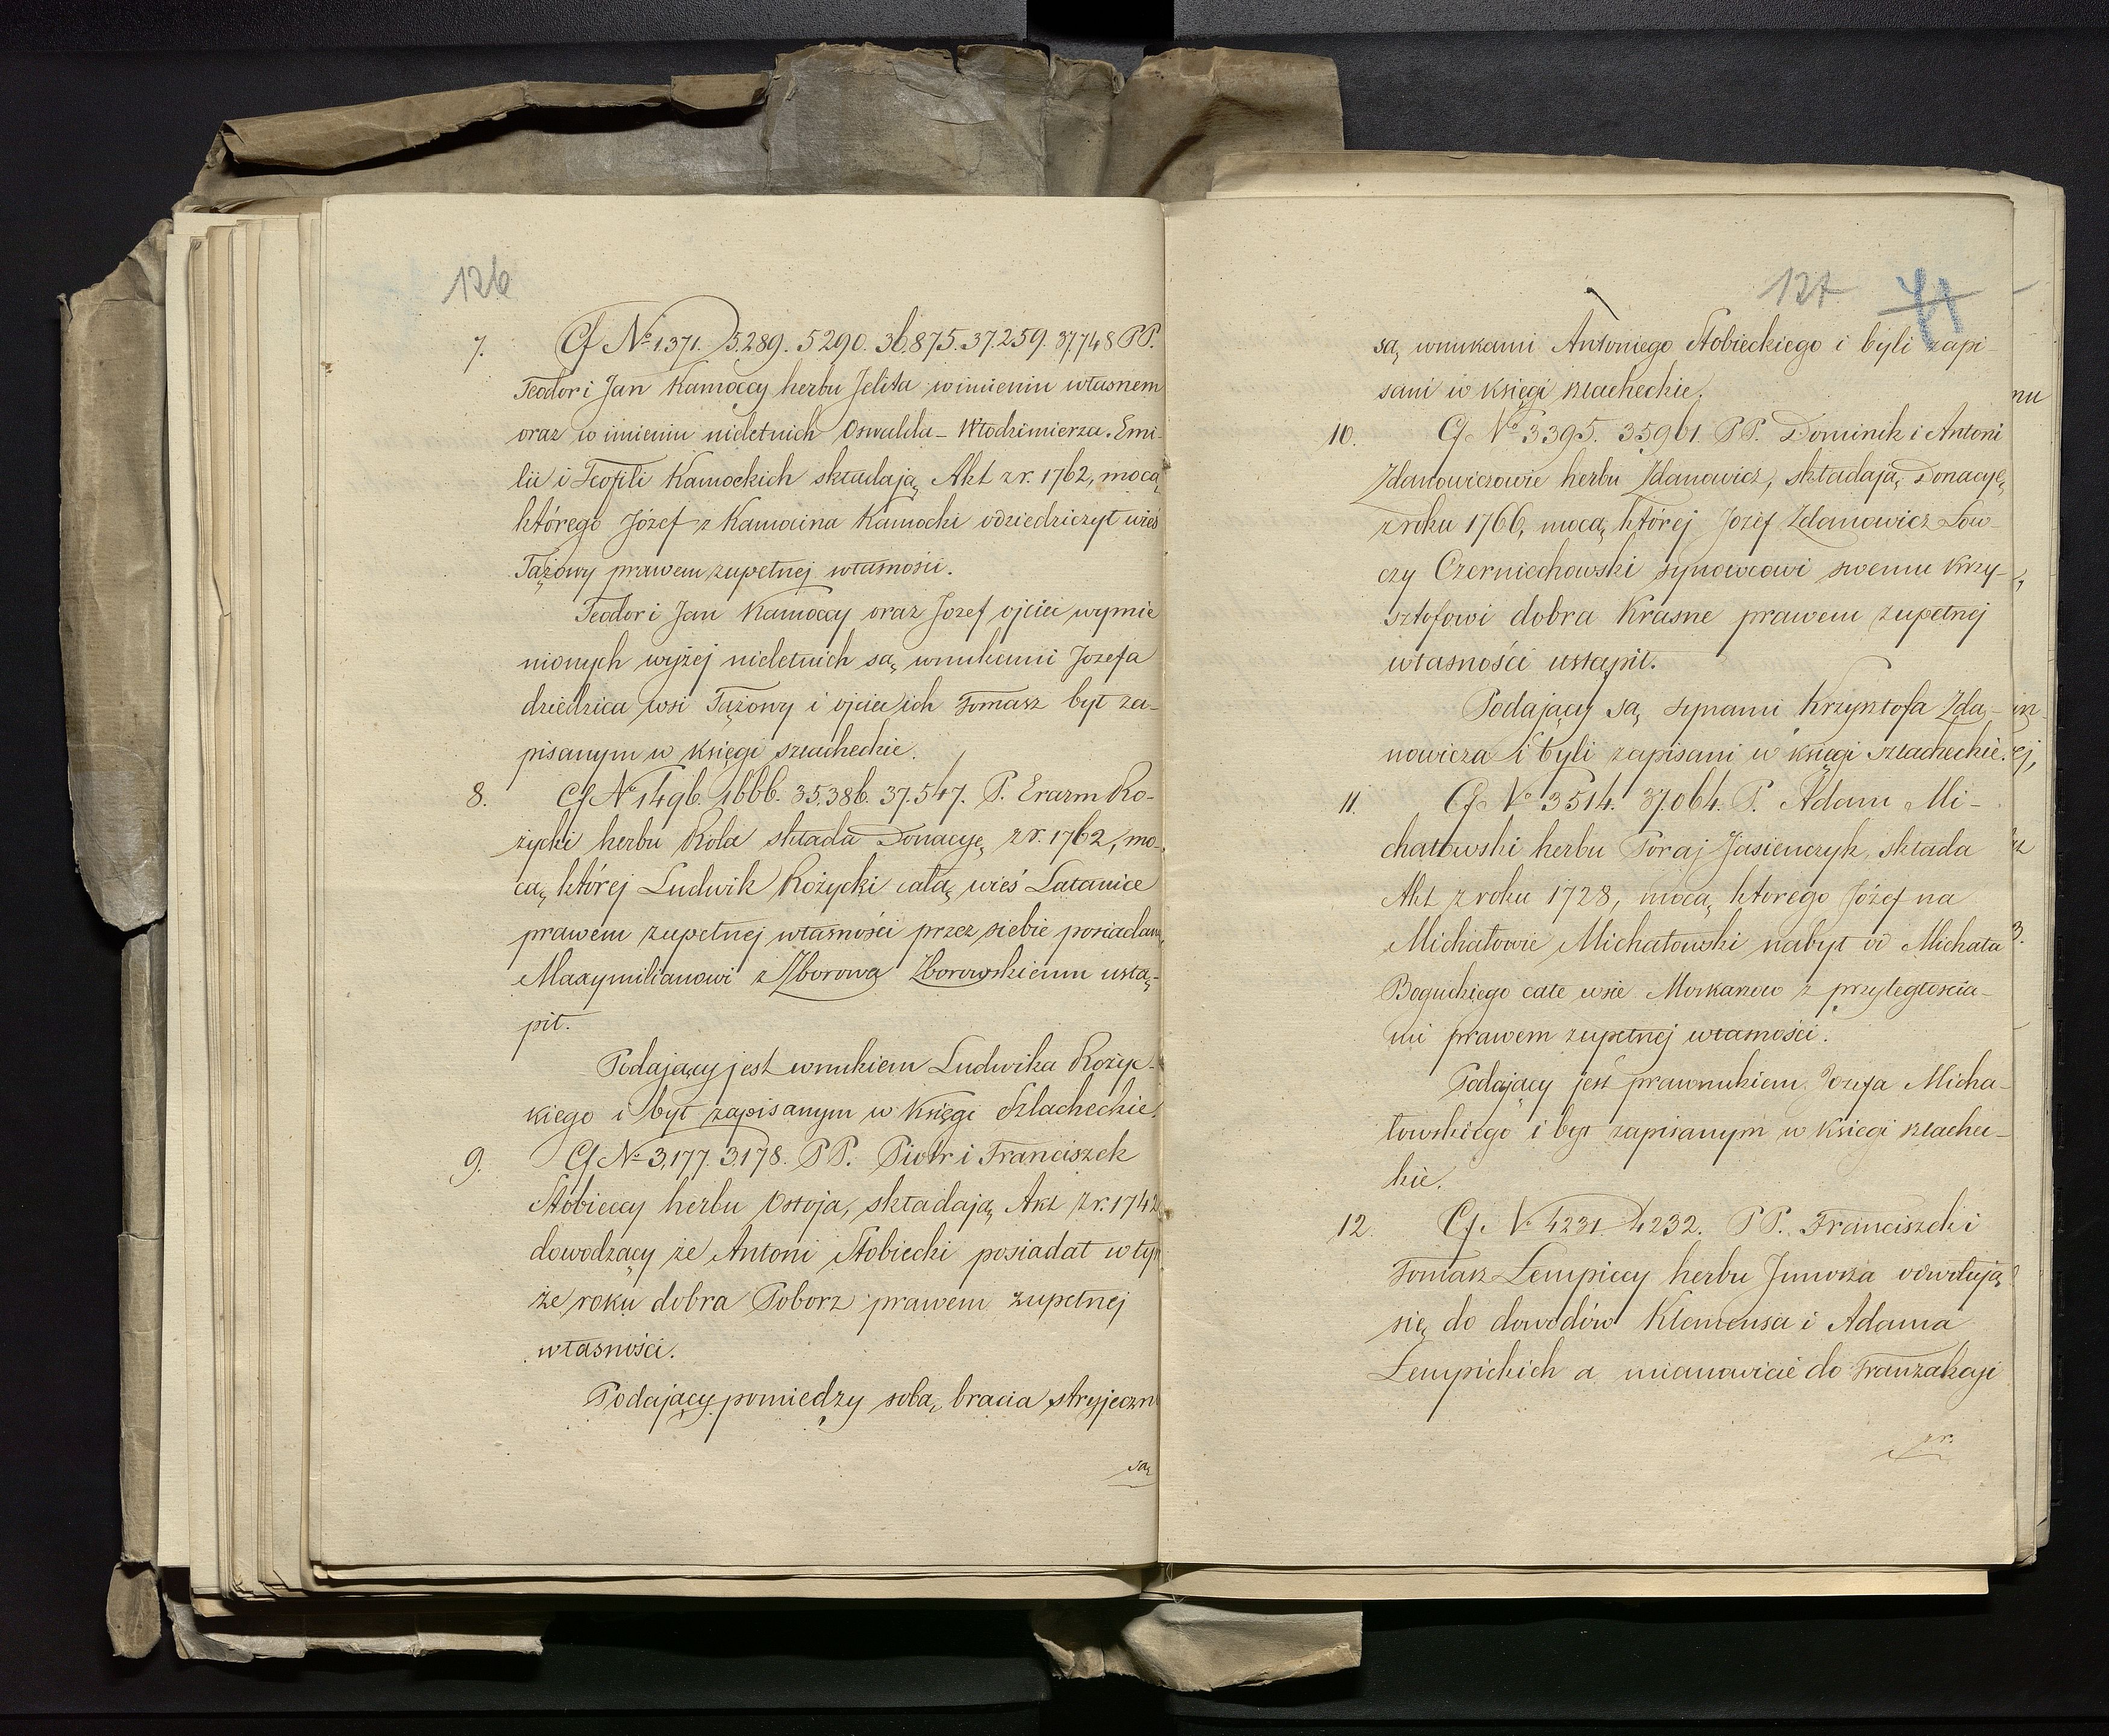 126
7. Cf No 1371. 5.289. 5290. 36.875. 37.259. 37.748 PP.
Teodor i Jan Kamoccy herbu Jelita w imieniu własnem
oraz w imieniu nieletnich Oswalda – Włodzimierza. Emi-
lii i Teofili Kamockich składają Akt z r. 1762, mocą
którego Józef z Kamocina Kamocki odziedziczył wieś
Tążowy prawem zupełnej własności.
Teodor i Jan Kamoccy oraz Jozef ojciec wymie
nionych wyżej nieletnich są wnukami Jozefa
dziedzica wsi Tążowy i ojciec ich Tomasz był za-
pisanym w księgi szlacheckie.
8. Cf No 1496. 1666. 35.386. 37.547. P. Erazm Ro-
życki herbu Rola składa Donacyę z r. 1762, mo-
cą której Ludwik Rożycki całą wieś Latanice
prawem zupełnej własności przez siebie posiadaną
Maxymilianowi z Zborowa Zborowskiemu ustą-
pił.
Podający jest wnukiem Ludwika Rożyc-
kiego i był zapisanym w Księgi Szlacheckie.
9. Cf No 3,177. 3178. PP. Piotr i Franciszek
Stobieccy herbu Ostoja, składają Akt z r. 1742
dowodzący że Antoni Stobiecki posiadał w tym
że roku dobra Poborz prawem zupełnej
własności.
Podający pomiedzy sobą bracia stryjeczni
są
127. 71
są wnukami Antoniego Stobieckiego i byli zapi-
sani w księgi szlacheckie.
10. Cf. No 3395. 35961. PP. Dominik i Antoni
Zdanowiczowie herbu Zdanowicz, składają Donacyę
z roku 1766, mocą której Jozef Zdanowicz Łow-
czy Czerniechowski synowcowi swemu Krzy-
sztofowi dobra Krasne prawem zupełnej
własności ustąpił.
Podający są synami Krzysztofa Zda-
nowicza i byli zapisani w księgi szlacheckie.
11. Cf. No 3514. 37.064. P. Adam Mi-
chałowski herbu Poraj Jasieńczyk, składa
Akt z roku 1728, mocą ktorego Józef na
Michałowie Michałowski nabył od Michała
Boguckiego całe wsie z przyległościa-
mi prawem zupełnej własności.
Podający jest prawnukiem Jozefa Micha-
łowskiego i był zapisanym w księgi szlachec-
kie.
12. Cf. No 4231. 4232. PP. Franciszek i
Tomasz Lempiccy herbu Junosza odwołują
się do dowodów Klemensa i Adama
Lempickich a mianowicie do Tranzakcyi
z r.